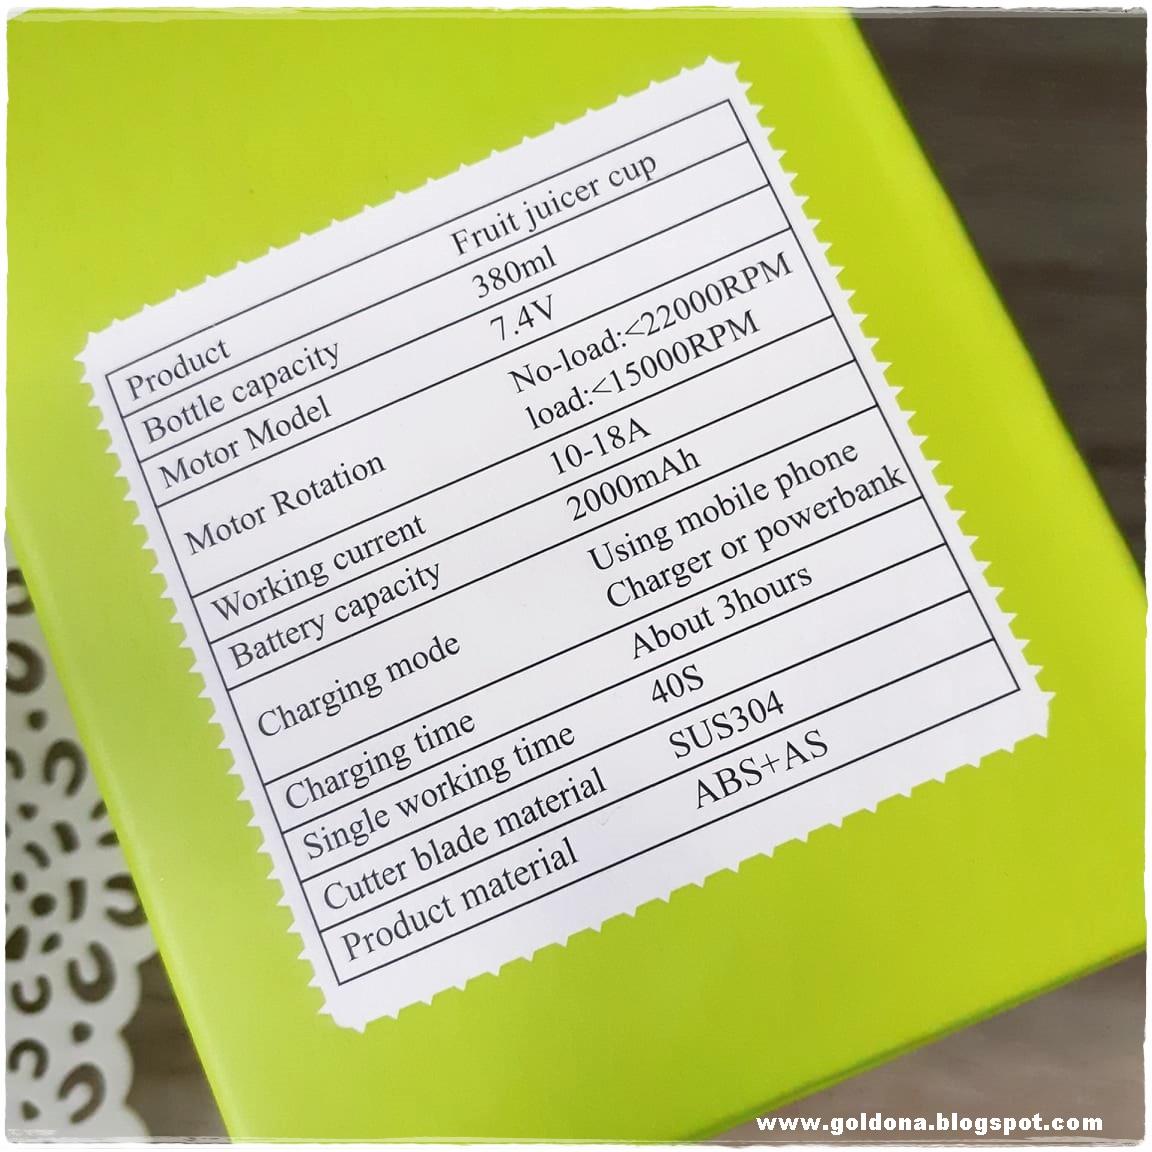 Product Fruit juicer cup
Bottle capacity 380ml
Motor Model 7.4V
Motor Rotation No-load:<22000RPM
load:<15000RPM
Working current 10-18A
Battery capacity 2000mAh
Charging mode Using mobile phone
Charger or powerbank
Charging time About 3hours
Single working time 40S
Cutter blade material SUS304
Product material ABS+AS
www.goldona.blogspot.com